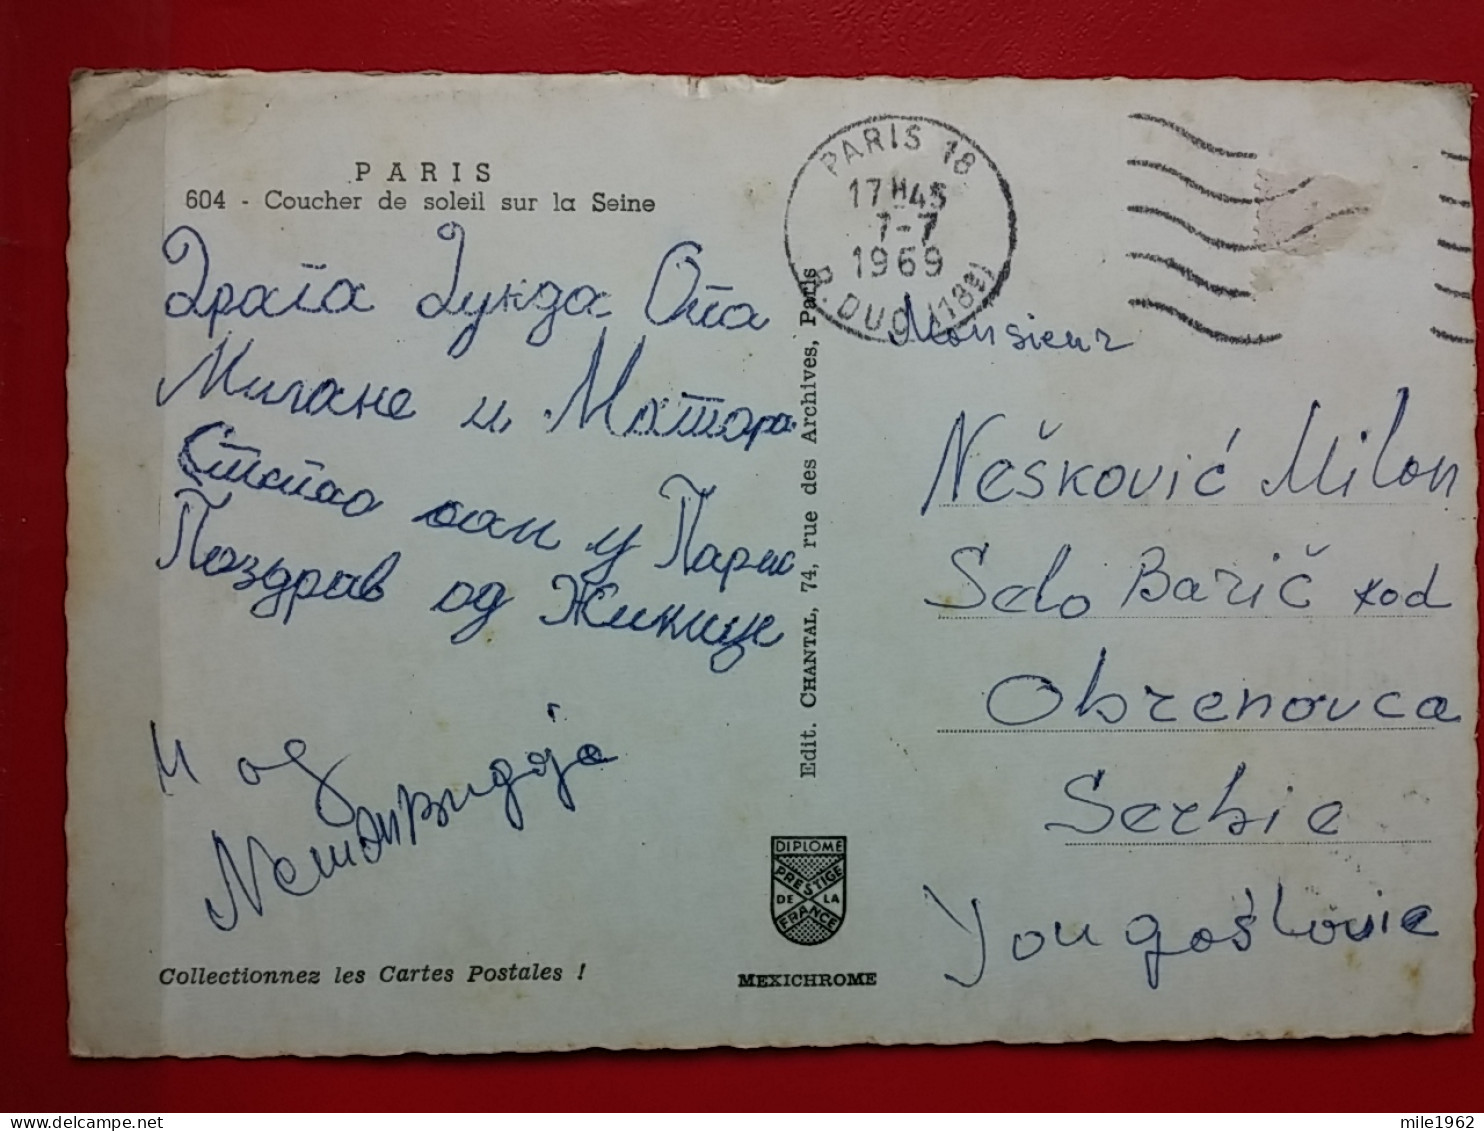 PARIS
604 - Coucher de soleil sur la Seine
Драга
Милане и
сам у Париз
Поздрав од Живице
и од
PARIS 18
17H45
7-7
1969
R. DUC (18e)
Monsieur
Nešković Milan
Selo Barič kod
Obrenovca
Serbie
Yougoslovie
Edit. CHANTAL, 74, rue des Archives, Paris
DIPLOME
PRESTIGE
DE LA
FRANCE
MEXICHROME
Collectionnez les Cartes Postales !
mile1962